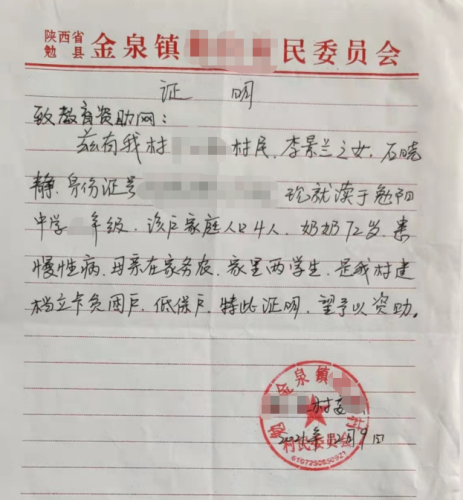 陕西省
勉 县
金泉镇 民委员会
证 明
致教育资助网:
兹有我村 村民,李景兰之女,石晓
静,身份证号 现就读于勉县
中学 年级,该户家庭人口4人,奶奶72岁,患
慢性病,母亲在家务农,家里两学生,是我村建
档立卡贫困户,低保户,特此证明,望予以资助。
金泉镇 村
村
月9日
村民委员会